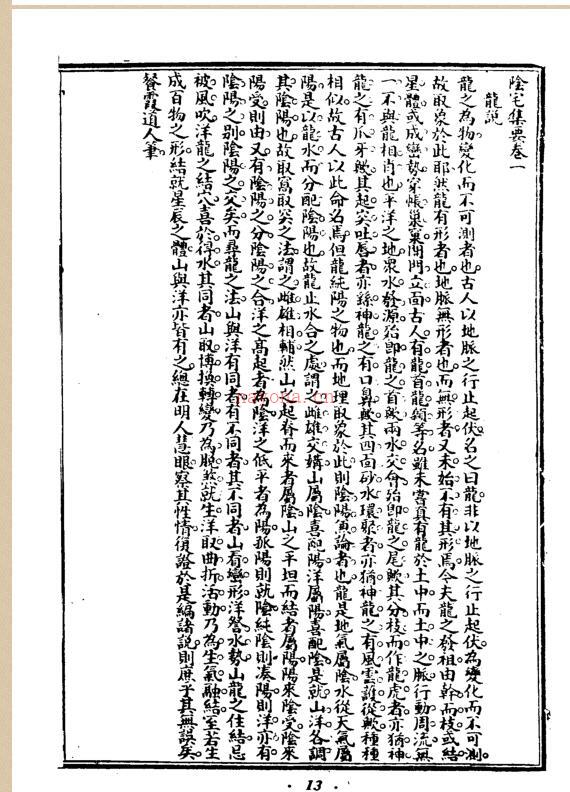 陰宅集要卷一
龍説
龍之為物變化而不可測者也古人以地脉之行止起伏名之曰龍非以地脉之行止起伏為變化而不可測
故取象於此耶然龍有形者也地脉無形者也而無形者又未始不有其形焉今夫龍之發祖由幹而枝或結
星體或成巒勢穿帳巢窠開門立面古人有龍首龍額等名雖未嘗真有龍於土中而土中之脉行動周流無
一不與龍相肖也平洋之地衆水發源殆即龍之首歟兩水交會殆即龍之尾歟其分枝而作龍虎者亦猶神
龍之有爪牙歟其起突吐唇者亦猶神龍之有口鼻歟其四面砂水環聚者亦猶神龍之有風雲護從歟種種
相似故古人以此命名焉但龍純陽之物也而地理取象於此則陰陽須論者也龍是地氣屬陰水從天氣屬
陽是以龍水而分配陰陽也故龍止水合之處謂之雌雄交媾山屬陰喜配陽洋屬陽喜配陰是就山洋各調
其陰陽也故取窩取突之法謂之雌雄相輔然山之起脊而來者屬陰山之平坦而結者屬陽陽來陰受陰來
陽受則由又有陰陽之分陰陽之合洋之高起者為陰洋之低平者為陽孤陽則就陰純陰則湊陽則洋亦有
陰陽之别陰陽之交矣而尋龍之法山與洋有同者有不同者其不同者山看巒形洋營水勢山龍之住結忌
被風吹洋龍之結穴喜於得水其同者山取博換轉變乃為脱煞就生洋取曲折活動乃為生氣融結至若生
成百物之形結就星辰之體山與洋亦皆有之總在明人慧眼察其性情復證於是編諸説則庶乎其無誤矣
餐霞道人筆
· 13 ·